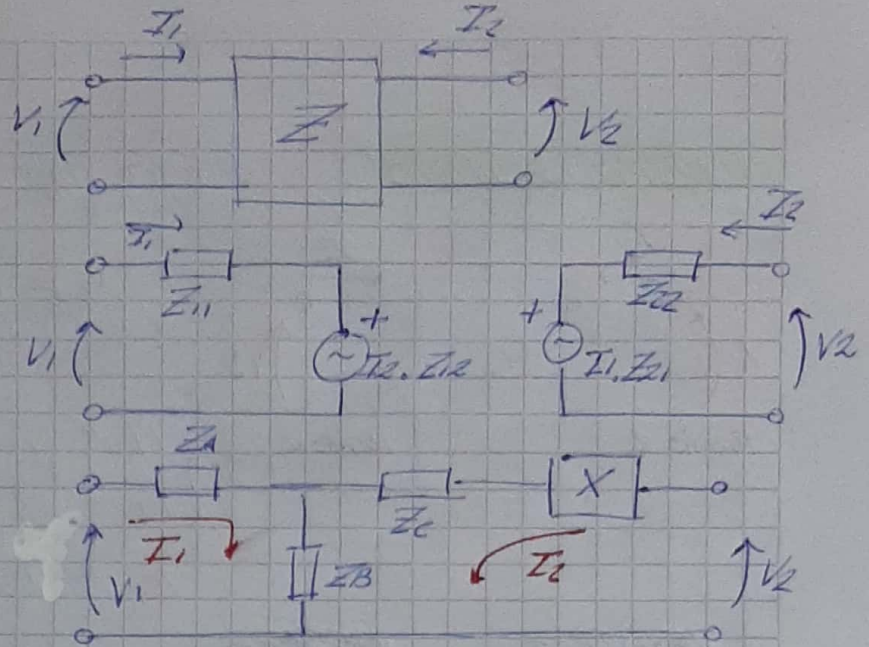 I1 I2
V1 Z V2
I1 I2
Z11 Z22
V1 + I2.Z12 + I1.Z21 V2
ZA
X
ZC
I1 I2
V1 ZB V2